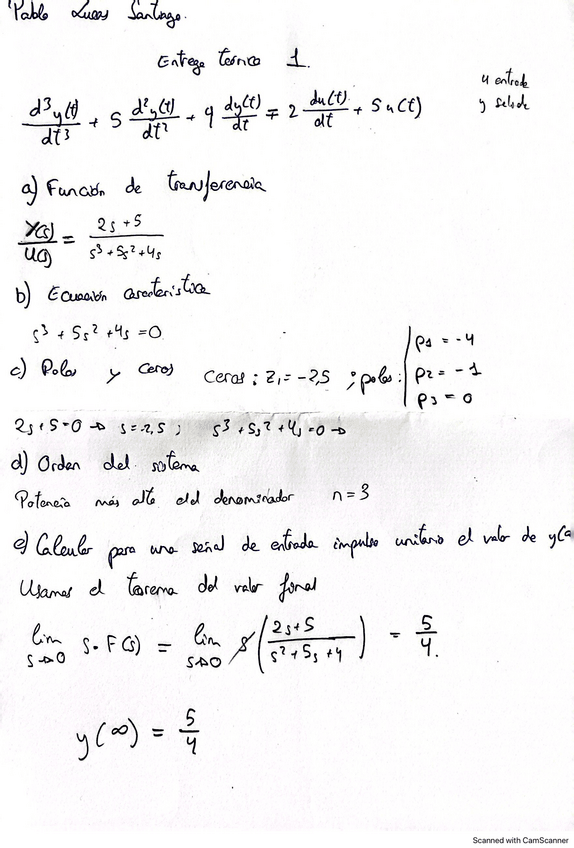 Pablo Lucas Santiago.
Entrega teórica 1.
u entrada
y salida
d³y(t)/dt³ + 5 d²y(t)/dt² + 4 dy(t)/dt = 2 du(t)/dt + 5u(t)
a) Función de transferencia
Y(s)/U(s) = (2s+5)/(s³+5s²+4s)
b) Ecuación característica
s³ + 5s² + 4s = 0
c) Polos y ceros
Ceros: z₁ = -2,5 ; polos: p1 = -4
p2 = -1
p3 = 0
2s+5=0 → s=-2,5 ; s³+5s²+4s=0 →
d) Orden del sistema
Potencia más alta del denominador n=3
e) Calcular para una señal de entrada impulso unitario el valor de y(
Usamos el teorema del valor final
lim s→0 s·F(s) = lim s→0 s((2s+5)/(s²+5s+4)) = 5/4.
y(∞) = 5/4
Scanned with CamScanner